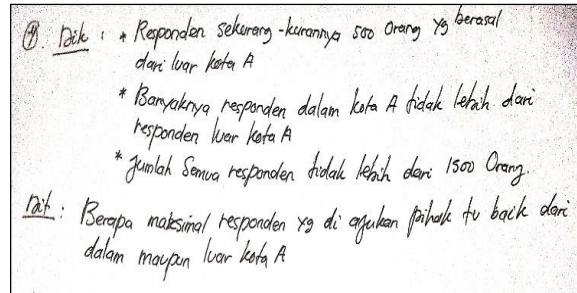 ④. Dik : * Responden sekurang-kurannya 500 Orang yg berasal
dari luar kota A
* Banyaknya responden dalam kota A tidak lebih dari
responden luar kota A
* Jumlah Semua responden tidak lebih dari 1500 Orang.
Dit : Berapa maksimal responden yg di ajukan pihak tv baik dari
dalam maupun luar kota A